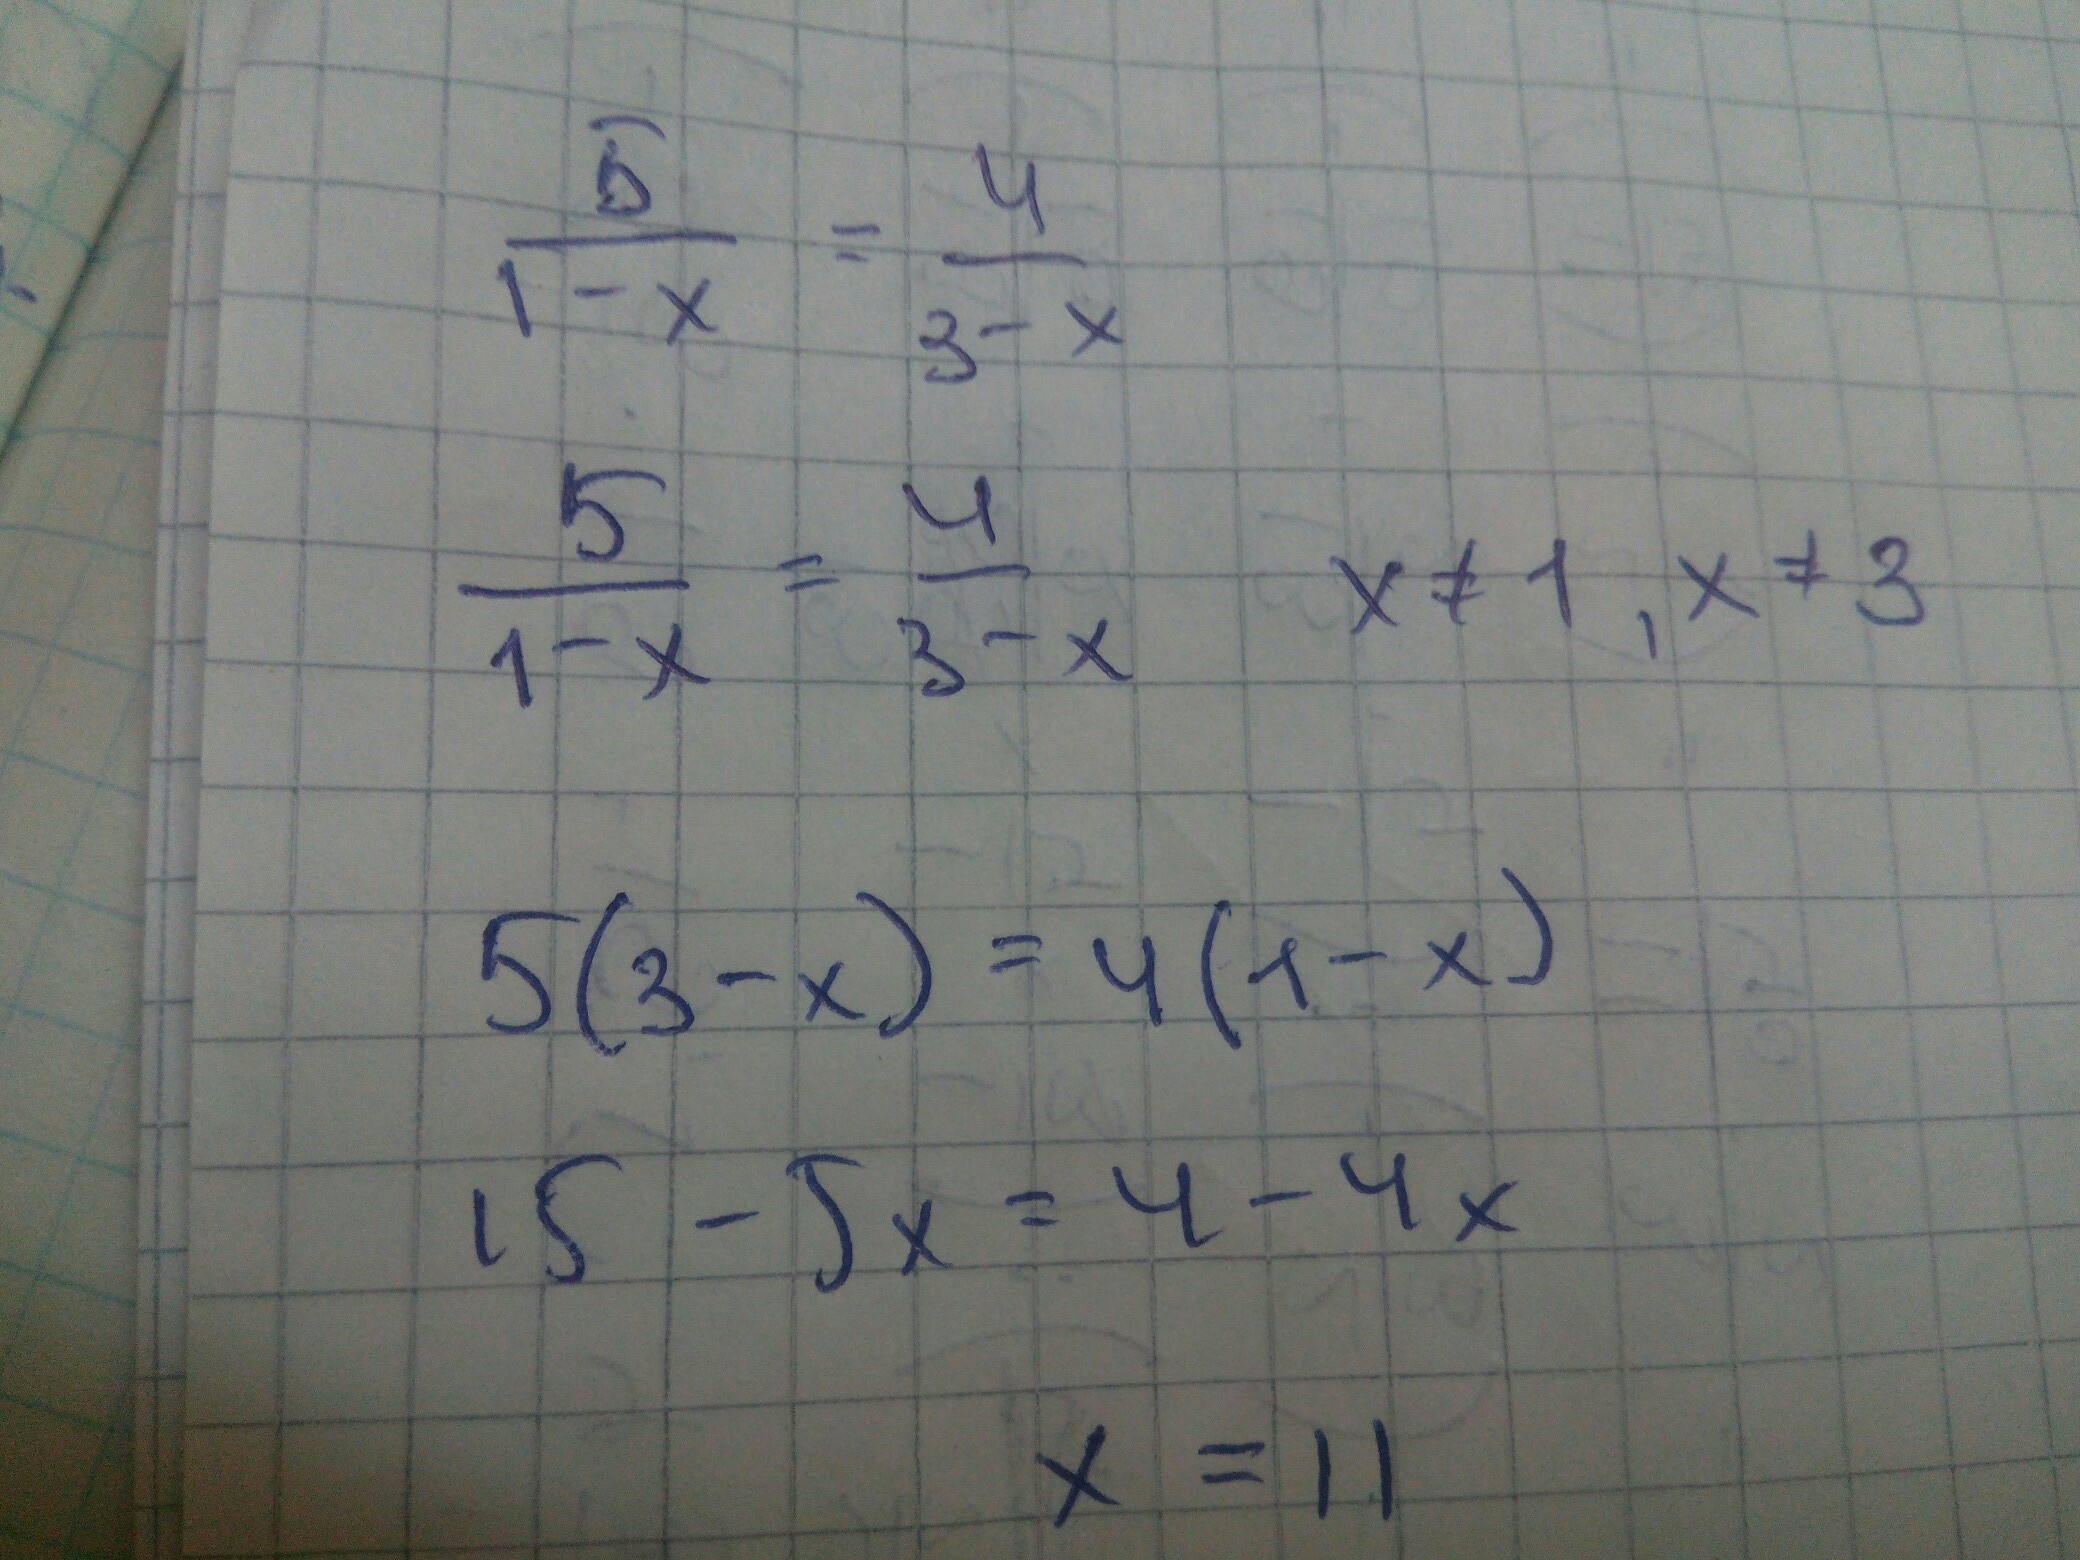 5/(1-x) = 4/(3-x)
5/(1-x) = 4/(3-x) x ≠ 1, x ≠ 3
5(3-x) = 4(1-x)
15 - 5x = 4 - 4x
x = 11